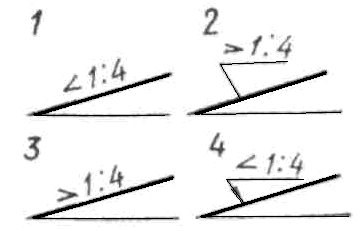 1
∠1:4
2
>1:4
3
>1:4
4
∠1:4